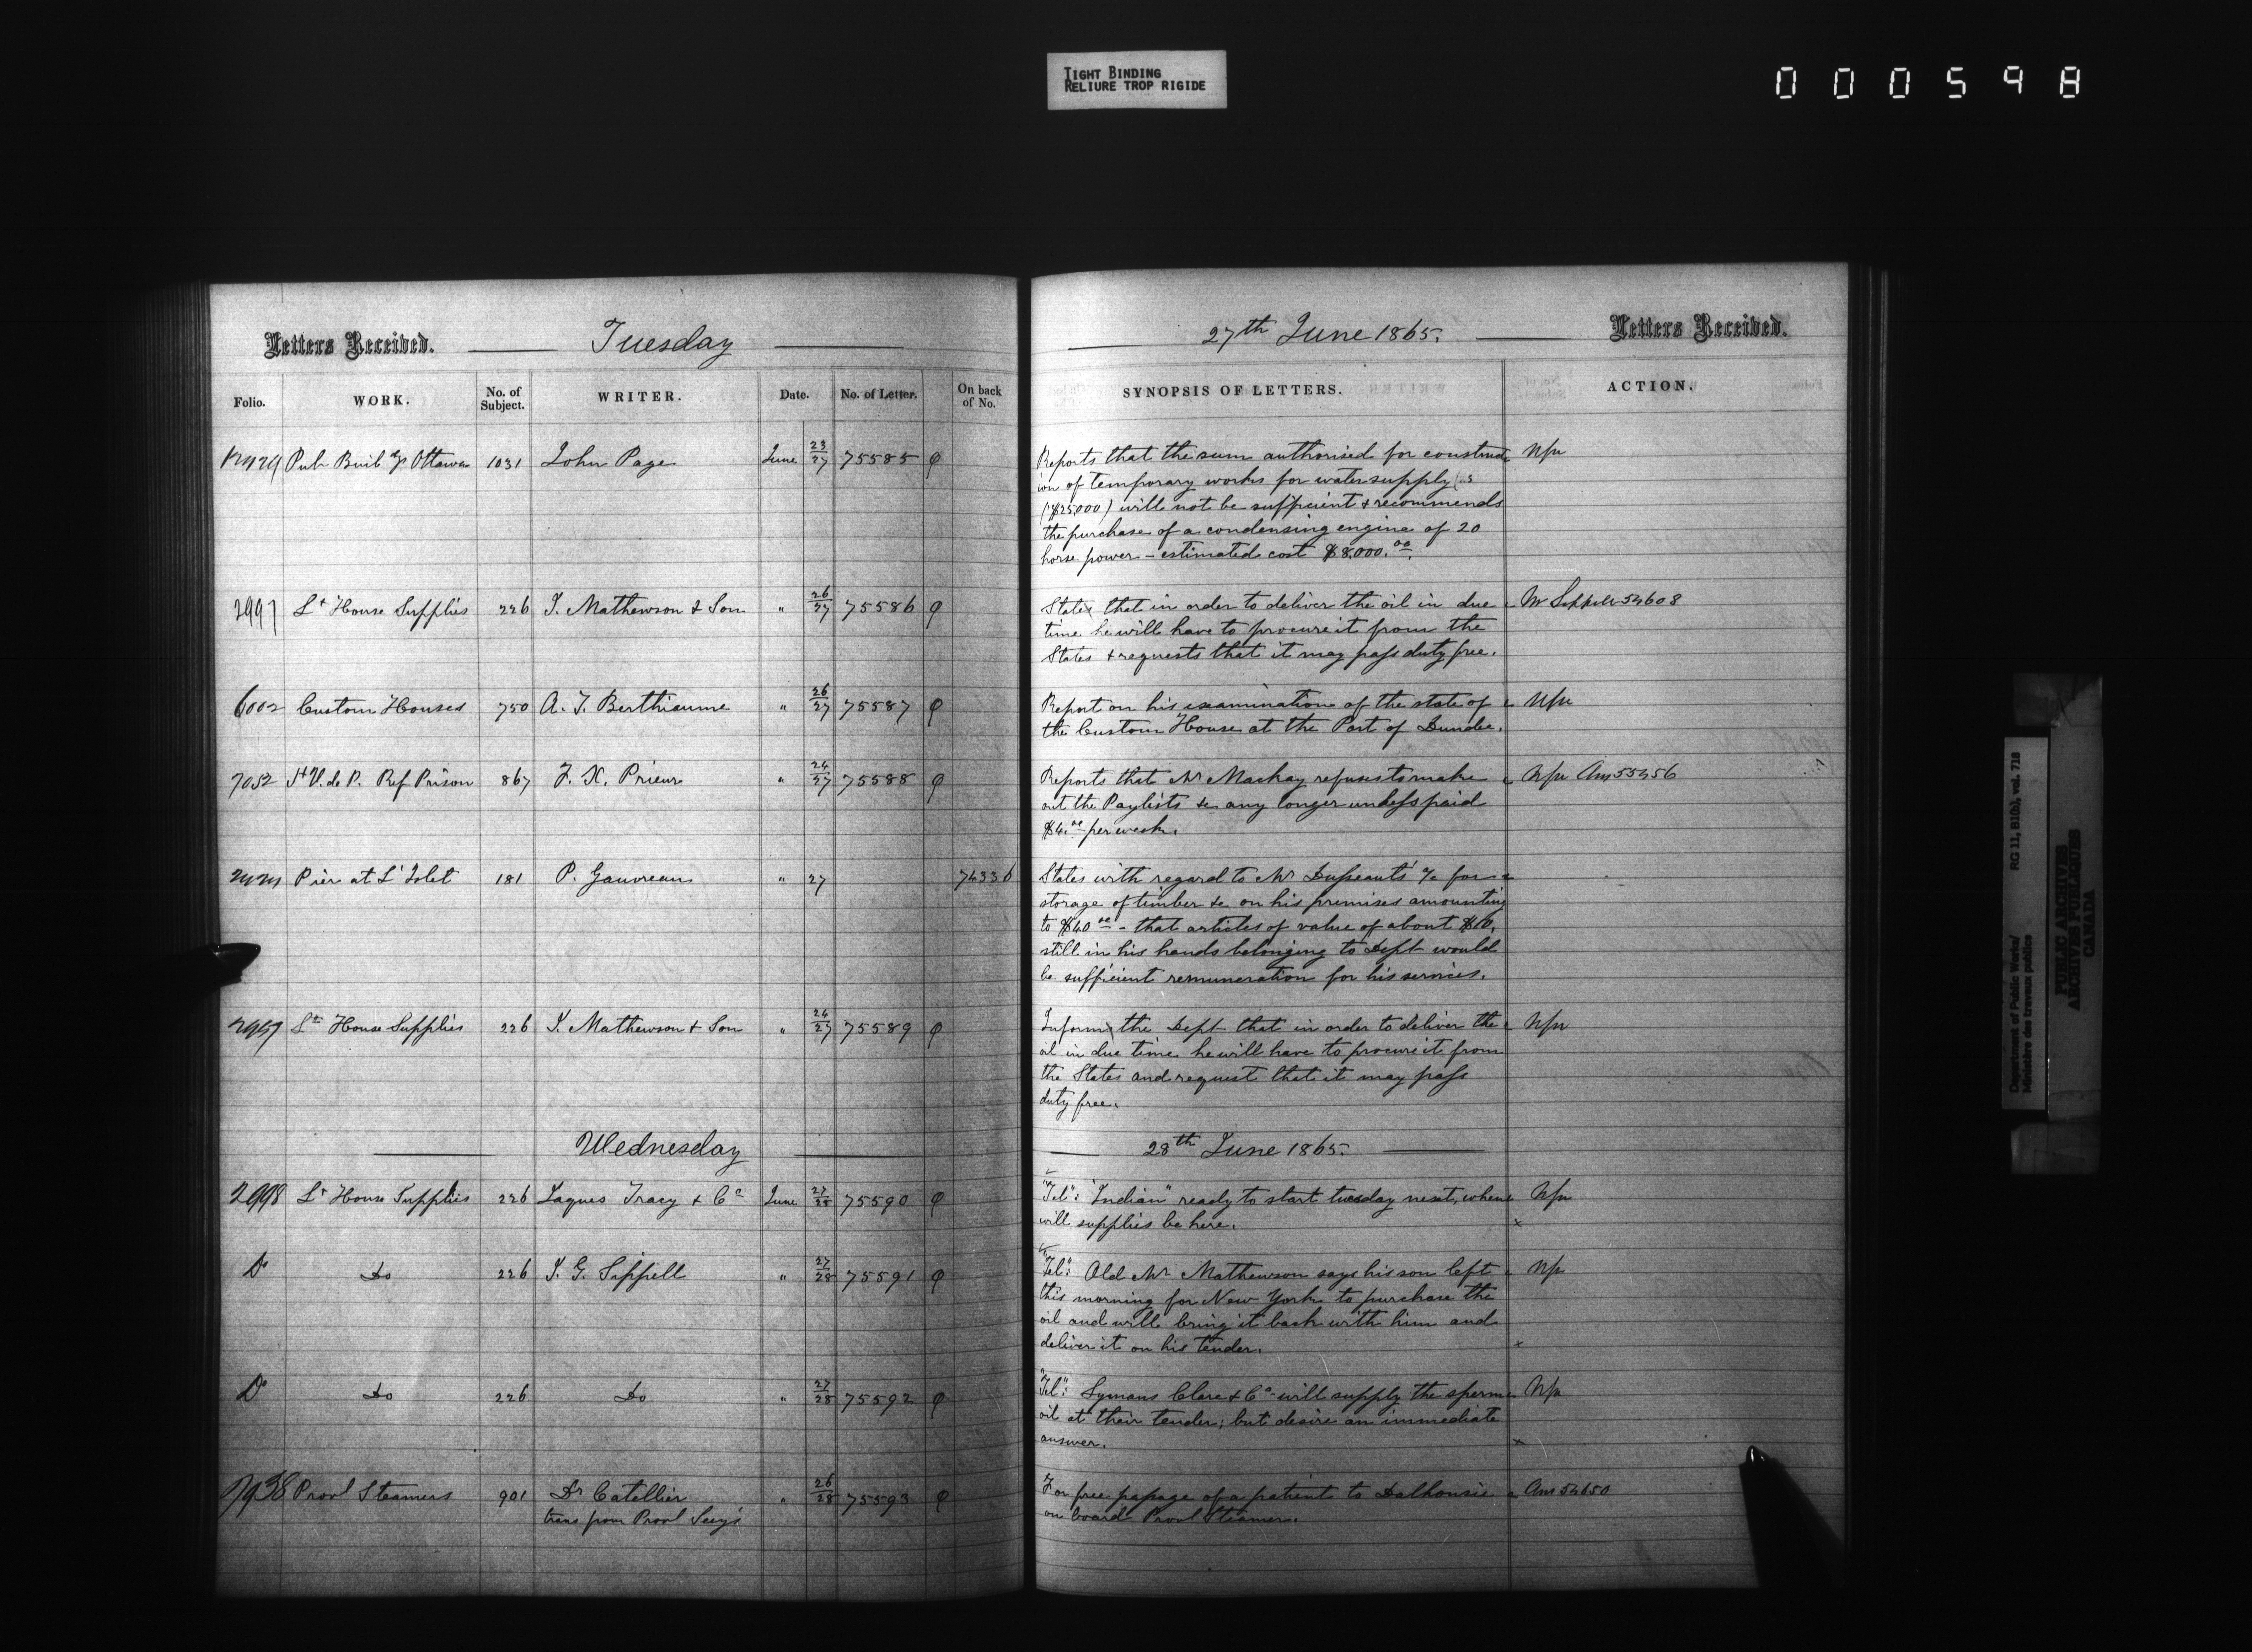 TIGHT BINDING
RELIURE TROP RIGIDE
000598
Letters Received. Tuesday
Folio. WORK. No. of Subject. WRITER. Date. No. of Letter. On back of No.
Pub Buildgs Ottawa 1031 John Page June 23/27 75585
2997 Lt House Supplies 226 J. Mathewson & Son " 26/27 75586
6002 Custom Houses 750 A. T. Berthiaume " 26/27 75587
7052 St V. de P. Ref Prison 867 F. X. Prieur " 24/27 75588
Pier at L'Islet 181 P. Gauvreau " 27 74336
Lt House Supplies 226 J. Mathewson & Son " 24/27 75589
Wednesday
2998 Lt House Supplies 226 Jaques Tracy & Co June 27/28 75590
Do Do 226 J. G. Sippell " 27/28 75591
Do Do 226 Do " 27/28 75592
7938 Provl Steamers 901 Dr Catellier " 26/28 75593
trans from Provl Secy's
27th June 1865. Letters Received.
SYNOPSIS OF LETTERS. ACTION.
Reports that the sum authorised for construct
ion of temporary works for water supply
($25,000) will not be sufficient & recommends
the purchase of a condensing engine of 20
horse power - estimated cost $8,000.00.
States that in order to deliver the oil in due Mr Sippell 54608
time he will have to procure it from the
States & requests that it may pass duty free.
Report on his examination of the state of
the Custom House at the Port of Dundee.
Reports that Mr Mackay refuses to make Ans 55456
out the Paylists &c any longer unless paid
$4.00 per week.
States with regard to Mr Dusseault's a/c for
storage of timber &c on his premises amounting
to $40.00 - that articles of value of about $10.
still in his hands belonging to Dept would
be sufficient remuneration for his services.
Informs the Dept that in order to deliver the
oil in due time he will have to procure it from
the States and request that it may pass
duty free.
28th June 1865.
"Tel": "Indian" ready to start tuesday next, when
will supplies be here.
"Tel": Old Mr Mathewson says his son left
this morning for New York to purchase the
oil and will bring it back with him and
deliver it on his tender.
"Tel": Lymans Clare & Co will supply the sperm
oil at their tender; but desire an immediate
answer.
For free passage of a patient to Dalhousie Ans 54650
on board Provl Steamer.
Department of Public Works/ RG 11, B1(b), vol. 718
Ministère des travaux publics
PUBLIC ARCHIVES
ARCHIVES PUBLIQUES
CANADA